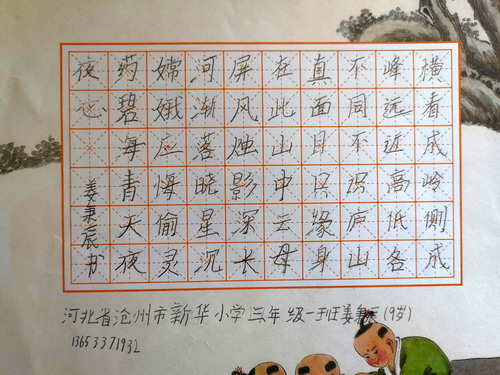 横看成岭侧成
峰远近高低各
不同不识庐山
真面目只缘身
在此山中云母
屏风烛影深长
河渐落晓星沉
嫦娥应悔偷灵
药碧海青天夜
夜心
姜秉辰书
河北省沧州市新华小学三年级一班姜秉辰(9岁)
13653371932